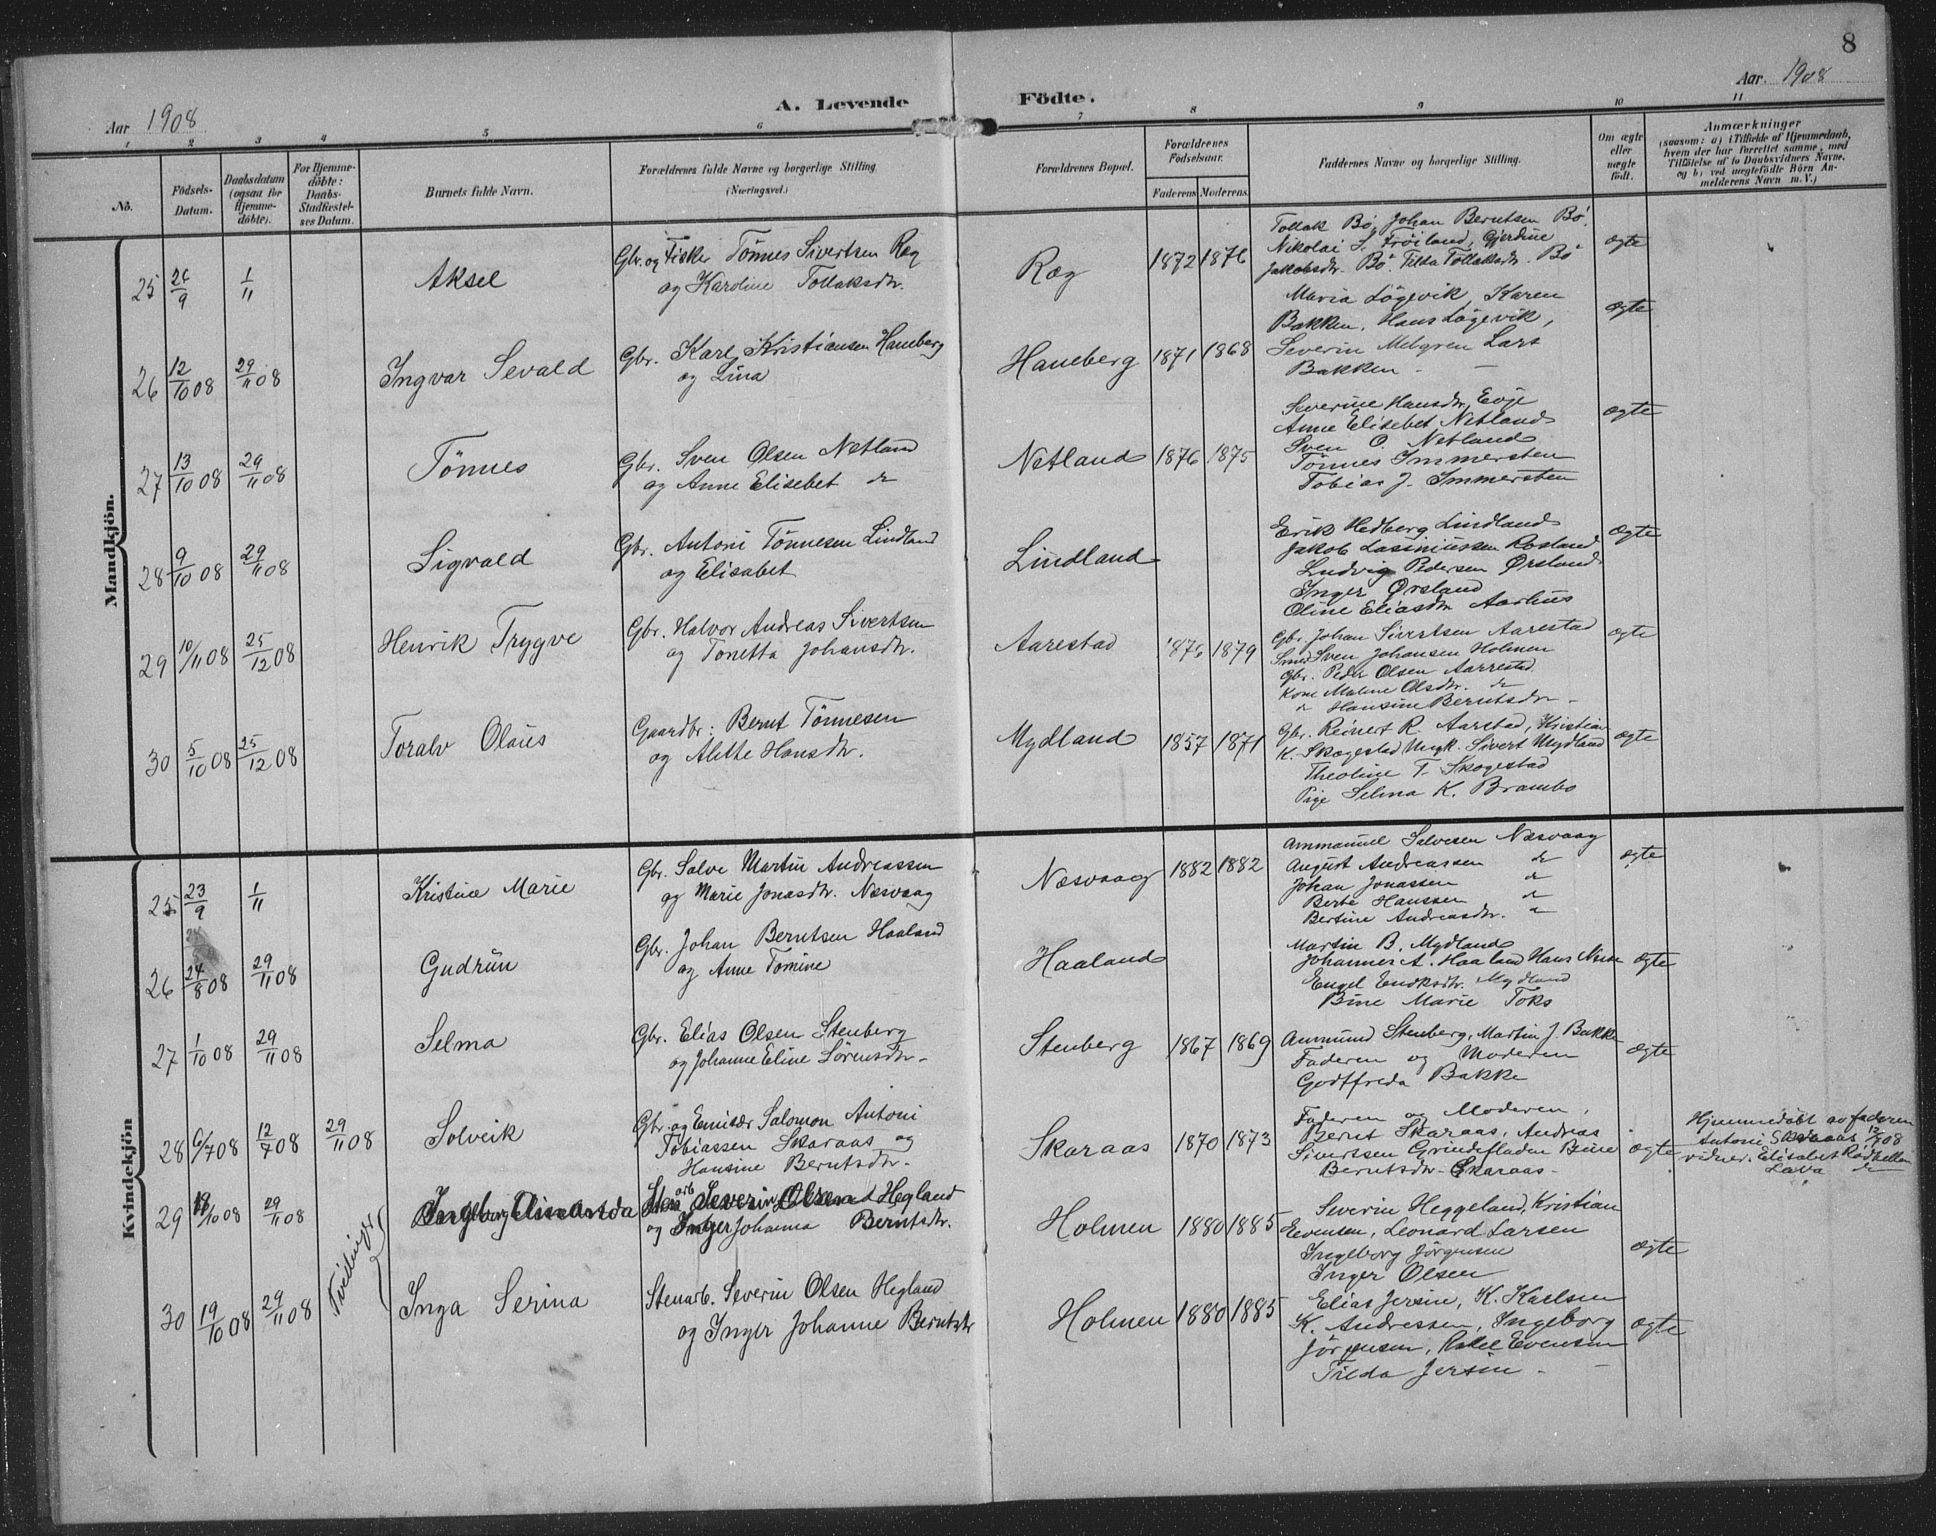 8
Aar 1908
A. Levende Födte.
Aar. 1908
1 2 3 4 5 6 7 8 9 10 11
No.
Födsels-
Datum.
Daabsdatum
(ogsaa for
Hjemme-
döbte).
For Hjemme-
döbte:
Daabs-
Stadfæstel-
ses Datum.
Barnets fulde Navn.
Forældrenes fulde Navne og borgerlige Stilling
(Næringsvei.)
Forældrenes Bopæl.
Forældrenes
Födselsaar.
Faderens. Moderens.
Faddernes Navne og borgerlige Stilling.
Om ægte
eller
uægte
födt.
Anmærkninger
(saasom: a) i Tilfælde af Hjemmedaab,
hvem der har forrettet samme, med
Tilföielse af to Daabsvidners Navne,
og b) ved uægtefödte Börn An-
melderens Navn m. V.)
Mandkjön.
25 26/9 1/11 Aksel
Gbr. og Fisker Tönnes Sivertsen Ræg
og Karoline Tollaksdtr.
Ræg 1872 1876
Tollak Bö, Johan Berntsen Bö,
Nikolai S. Fröiland, Gjerdine
Jakobsdtr. Bö. Tilda Tollaksdtr. Bö
ægte
26 12/10 08 29/11 08 Ingvar Sevald
Gbr. Karl Kristiansen Haneberg
og Lina
Haneberg 1871 1868
Maria Lögevik, Karen
Bakken, Hans Lögevik,
Severin Melgren Lars
Bakken -
ægte
27 13/10 08 29/11 08 Tönnes
Gbr. Sven Olsen Netland
og Anne Elisebet do
Netland 1876 1875
Severine Hansdtr. Eoje
Anne Elisebet Netland
Sven O. Netland
Tönnes Immersten
Tobias J. Immersten
ægte
28 9/10 08 29/11 08 Sigvald
Gbr. Antoni Tönnesen Lindland
og Elisabet
Lindland
Erik Hedberg Lindland
Jakob Lassniussen Rosland
Ludvig Pedersen Örsland
Inger Örsland
Oline Eliasdtr Aarhus
ægte
29 10/11 08 25/12 08 Henrik Trygve
Gbr. Halvor Andreas Sivertsen
og Tonetta Johansdtr.
Aarestad 1876 1879
Gbr. Johan Sivertsen Aarestad
Smed Sven Johansen Holmen
Gbr. Peder Olsen Aarrestad
Kone Maline Olsdtr. do
do Hansine Berntsdtr -
ægte
30 5/10 08 25/12 08 Toralv Olaus
Gaardbr: Bernt Tönnesen
og Alette Hansdtr.
Mydland 1857 1871
Gbr. Reinert R. Aarstad, Kristian
K. Skogestad Ungk. Sivert Mydland
Theoline T. Skogestad
Pige Selma K. Brambo
ægte
Kvindekjön
25 23/9 1/11 Kristine Marie
Gbr. Salve Martin Andreassen
og Marie Jonasdtr. Næsvaag
Næsvaag 1882 1882
Ammanuel Salvesen Næsvaag
August Andreassen do
Johan Jonassen do
Berte Hanssen do
Bertine Andreasdtr. do
ægte
26 24/8 08 29/11 08 Gudrün
Gbr. Johan Berntsen Haaland
og Anne Tomine
Haaland
Martin B. Mydland
Johannes A. Haaland Hans
Engel Mydland
Bine Marie Toks
ægte
27 1/10 08 29/11 08 Selma
Gbr. Elias Olsen Stenberg
og Johanne Eline Sörensdtr -
Stenberg 1867 1869
Ammund Stenberg, Martin J. Bakke
Faderen og Moderen
Godtfreda Bakke
ægte
28 6/7 08 12/7 08 29/11 08 Solveik
Gbr. og Emisær Salomon Antoni
Tobiassen Skaraas og
Hansine Berntsdtr.
Skaraas 1870 1873
Faderen og Moderen,
Bernt Skaraas, Andreas
Sivertsen Grindefladen Bine
Berntsdtr - Skaraas -
ægte
Hjemmedöbt av faderen
Antoni Skaraas 12/7 08
vidner. Elisabet Rödhellen
Lava do
29 19/10 08 29/11 08
Severin Olsen Hegland
og Inger Johanna Berntsdtr.
Holmen 1880 1885
Severin Heggeland, Kristian
Evensen, Leonard Larsen
Ingeborg Jörgensen
Inger Olsen
ægte
Tvillinger
30 19/10 08 29/11 08 Inga Serina
Stenarb. Severin Olsen Hegland
og Inger Johanne Berntsdtr
Holmen 1880 1885
Elias Jersin, K. Karlsen
K. Andressen, Ingeborg
Jörgensen, Rakel Evensen
Tilda Jersin -
ægte